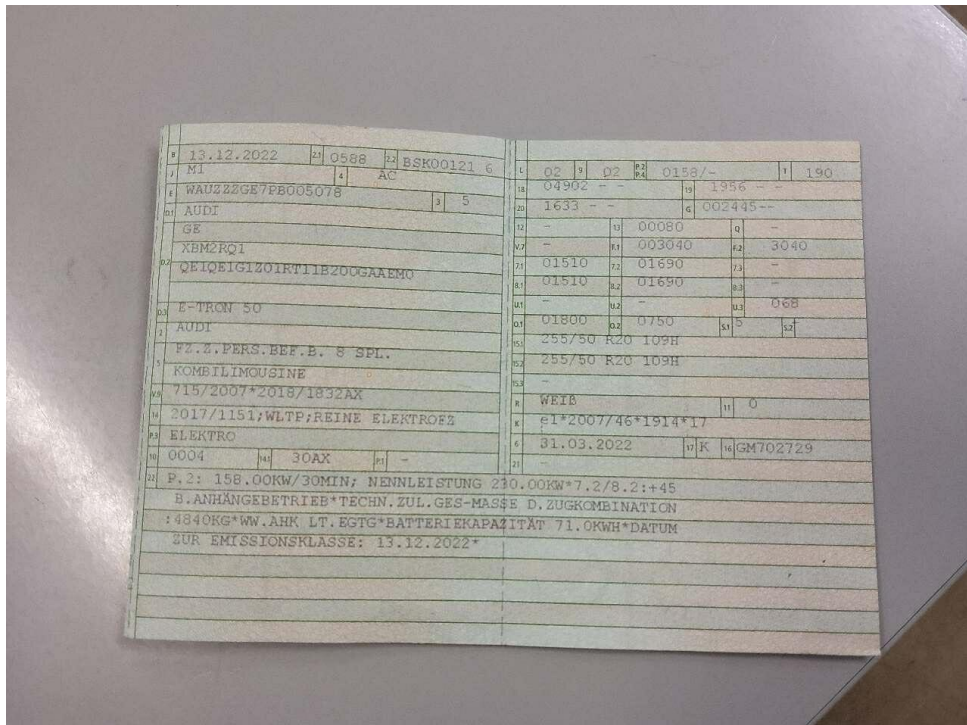 B 13.12.2022 2.1 0588 2.2 BSK00121 6
J M1 4 AC
E WAUZZZGE7PB005078 3 5
D.1 AUDI
GE
D.2 XBM2RQ1
QE1QEIG1Z01RT11B200GAAEM0
D.3 E-TRON 50
2 AUDI
5 FZ.Z.PERS.BEF.B. 8 SPL.
KOMBILIMOUSINE
V.9 715/2007*2018/1832AX
14 2017/1151;WLTP;REINE ELEKTROFZ
P.3 ELEKTRO
10 0004 14.1 30AX P.1 -
L 02 9 02 P.2 P.4 0158/- T 190
18 04902 - - 19 1956 - -
20 1633 - - G 002445--
12 - 13 00080 Q -
V.7 - F.1 003040 F.2 3040
7.1 01510 7.2 01690 7.3 -
8.1 01510 8.2 01690 8.3 -
U.1 - U.2 - U.3 068
O.1 01800 O.2 0750 S.1 5 S.2 -
15.1 255/50 R20 109H
15.2 255/50 R20 109H
15.3 -
R WEIß 11 0
K e1*2007/46*1914*17
6 31.03.2022 17 K 16 GM702729
21 -
22 P.2: 158.00KW/30MIN; NENNLEISTUNG 230.00KW*7.2/8.2:+45
B.ANHÄNGEBETRIEB*TECHN.ZUL.GES-MASSE D.ZUGKOMBINATION
:4840KG*WW.AHK LT.EGTG*BATTERIEKAPAZITÄT 71.0KWH*DATUM
ZUR EMISSIONSKLASSE: 13.12.2022*